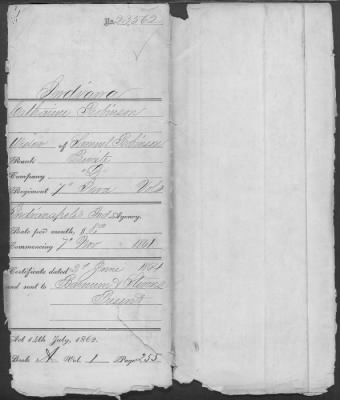 No. 23562
Indiana
Catharine Robinson
Widow of Samuel Robinson
Rank Private
Company "G"
Regiment 7" Iowa Vols
Indianapolis Ind Agency.
Rate per month, $ 8.00
Commencing 7" Nov 1861
Certificate dated 3d June 1864
and sent to
Present
Act 14th July, 1862.
Book A Vol. 1 Page 255